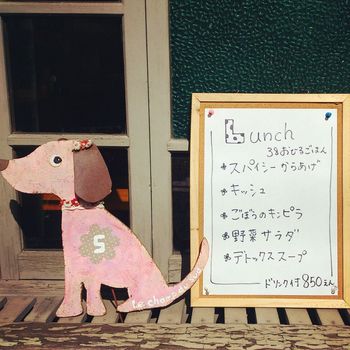 Lunch
3８おひるごはん
*スパイシーからあげ
*キッシュ
*ごぼうのキンピラ
*野菜サラダ
*デトックススープ
ドリンク付850えん
S